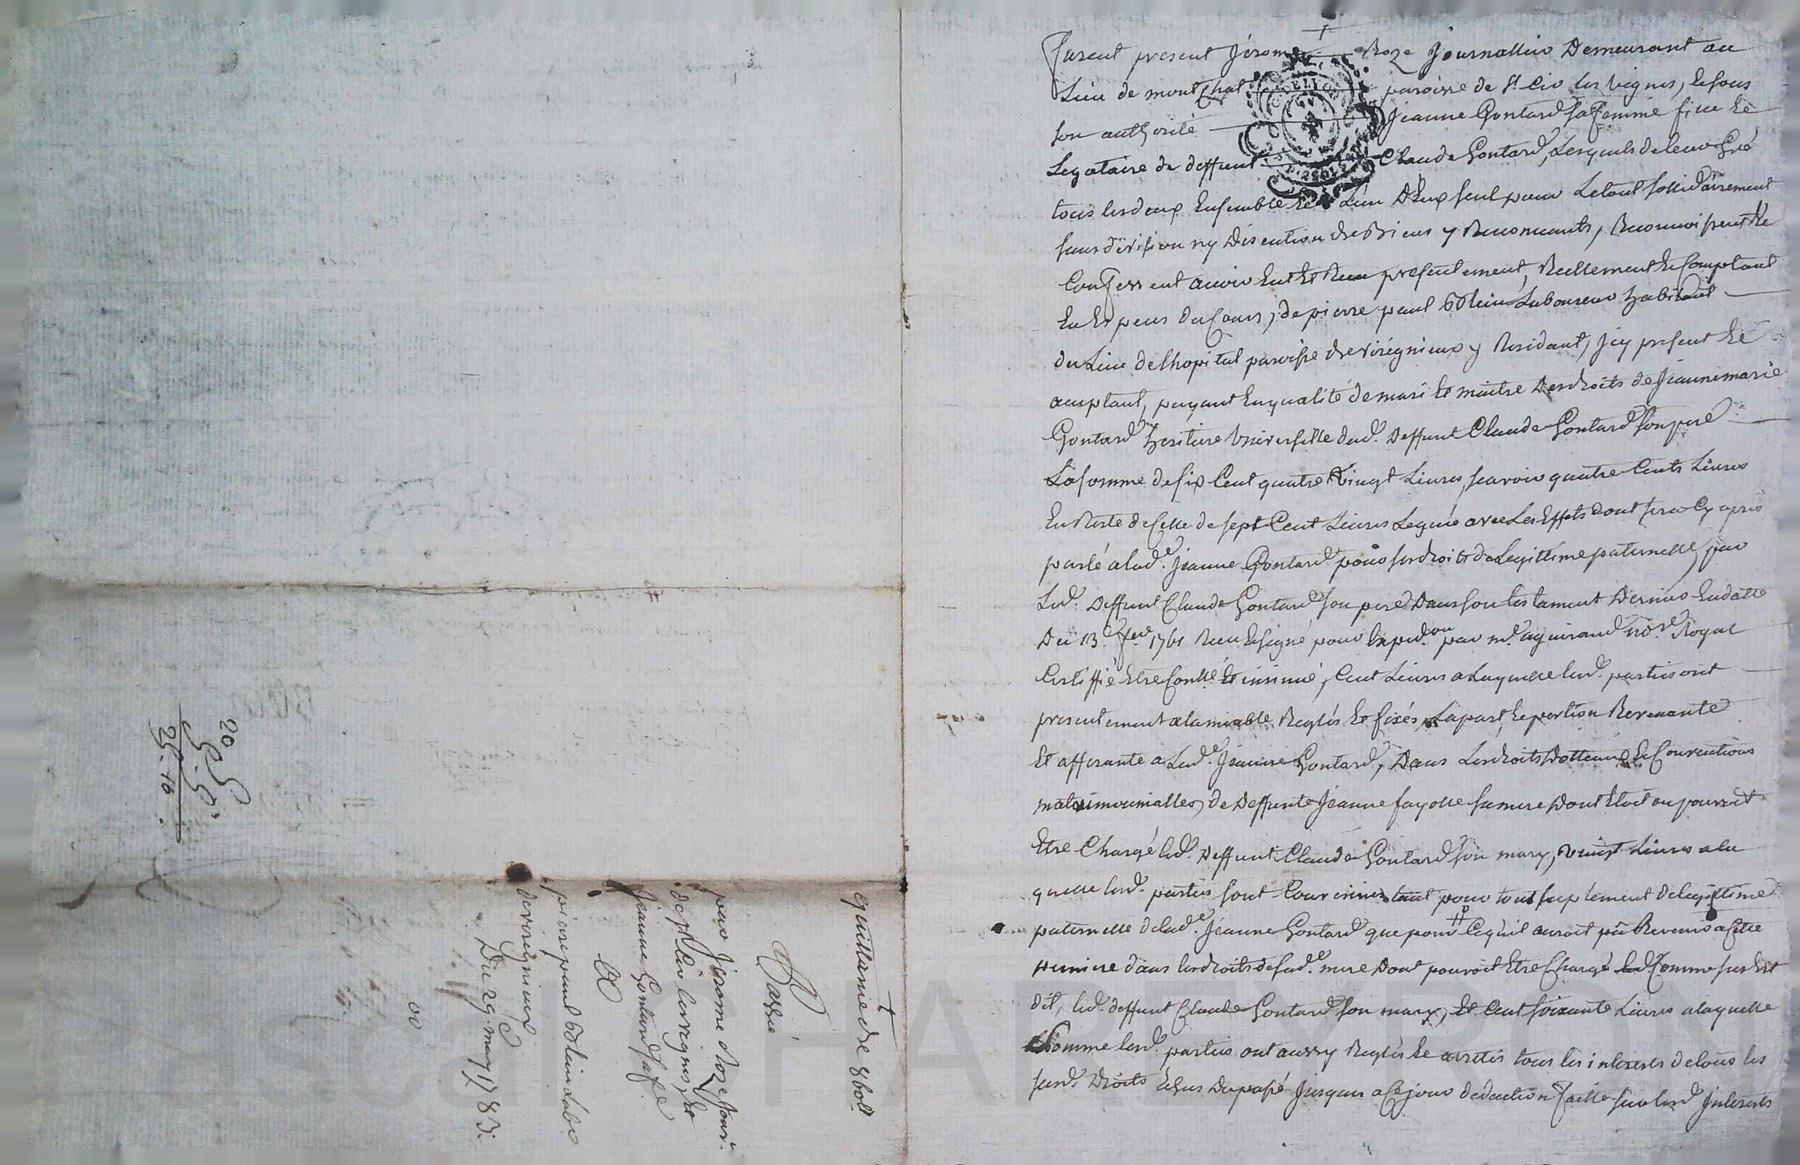 furent present Jérome Roze Journallier Demeurant au
Lieu de montchal paroisse de St Cir les vignes, et sous
son authorité Jeanne Gontard sa femme fille et
Legataire de deffunt Claude Gontard, Lesquels de leur Gré
tous les deux Ensemble et L'un D'Eux seul pour Le tout sollidairement
sans division ny Discution de Biens y Renonceants, Reconnoissent Et
Confessent avoir Eut Et Reçu presentement, Reellement et Comptant
En Especes du Cours, de pierre paul Laboureur habitant
du Lieu de Lhopital paroisse de virignieux y Residant, Jcy present Et
acceptant, payant En qualité de mari Et maitre Des droits de Jeannemarie
Gontard heritiere Universelle dud. deffunt Claude Gontard son pere
La somme de six Cent quatre Vingt Livres, scavoir quatre Cents Livres
En Reste de Celle de sept Cent Livres Leguée avec Les Effets Dont sera Cy apres
parlé a lad.e Jeanne Gontard pour ses droits de Legittime paternelle, par
Led. Deffunt Claude Gontard son pere Dans son testament Dernier En datte
Du 13.e 1761 Reçu Et signé pour par me. no.re Royal
Certiffié Etre Conllé Et insinué, Cent Livres a Laquelle lesd. parties ont
presentement a lamiable Reglés Et fixés, La part Et portion Revenante
Et afferante a Lad.e Jeanne Gontard, Dans Les droits Dotteaux et Conventions
matrimonialles, de Deffunte Jeanne fayolle sa mere Dont Etoit ou pouvoit
Etre Chargé led. Deffunt Claude Gontard son mary, vingt Livres a la
quelle lesd. parties sont Convenues tant pour tout suplement de legittime
paternelle de lad.e Jeanne Gontard que pour Ce qu'il auroit pû Revenir a Cette
premiere dans les droits de sad.e mere Dont pouvoit Etre Chargé Comme sus Est
dit, led. deffunt Claude Gontard son mary, Et Cent soixante Livres a laquelle
somme lesd. parties ont aussy Reglés Et arretés tous les interests de tous les
susd. Droits Echus Du passé Jusques a Ce jour deduction faitte sur lesd. Jnterests
quittance de 680tt
Passée
par Jerome Roze Jour.
de St Cir les vignes, Et
Jeanne Gontard sa fe
A
pierre paul Labr
de virignieux
Du 29 may 1783.
20
5. 5.
25. 10.